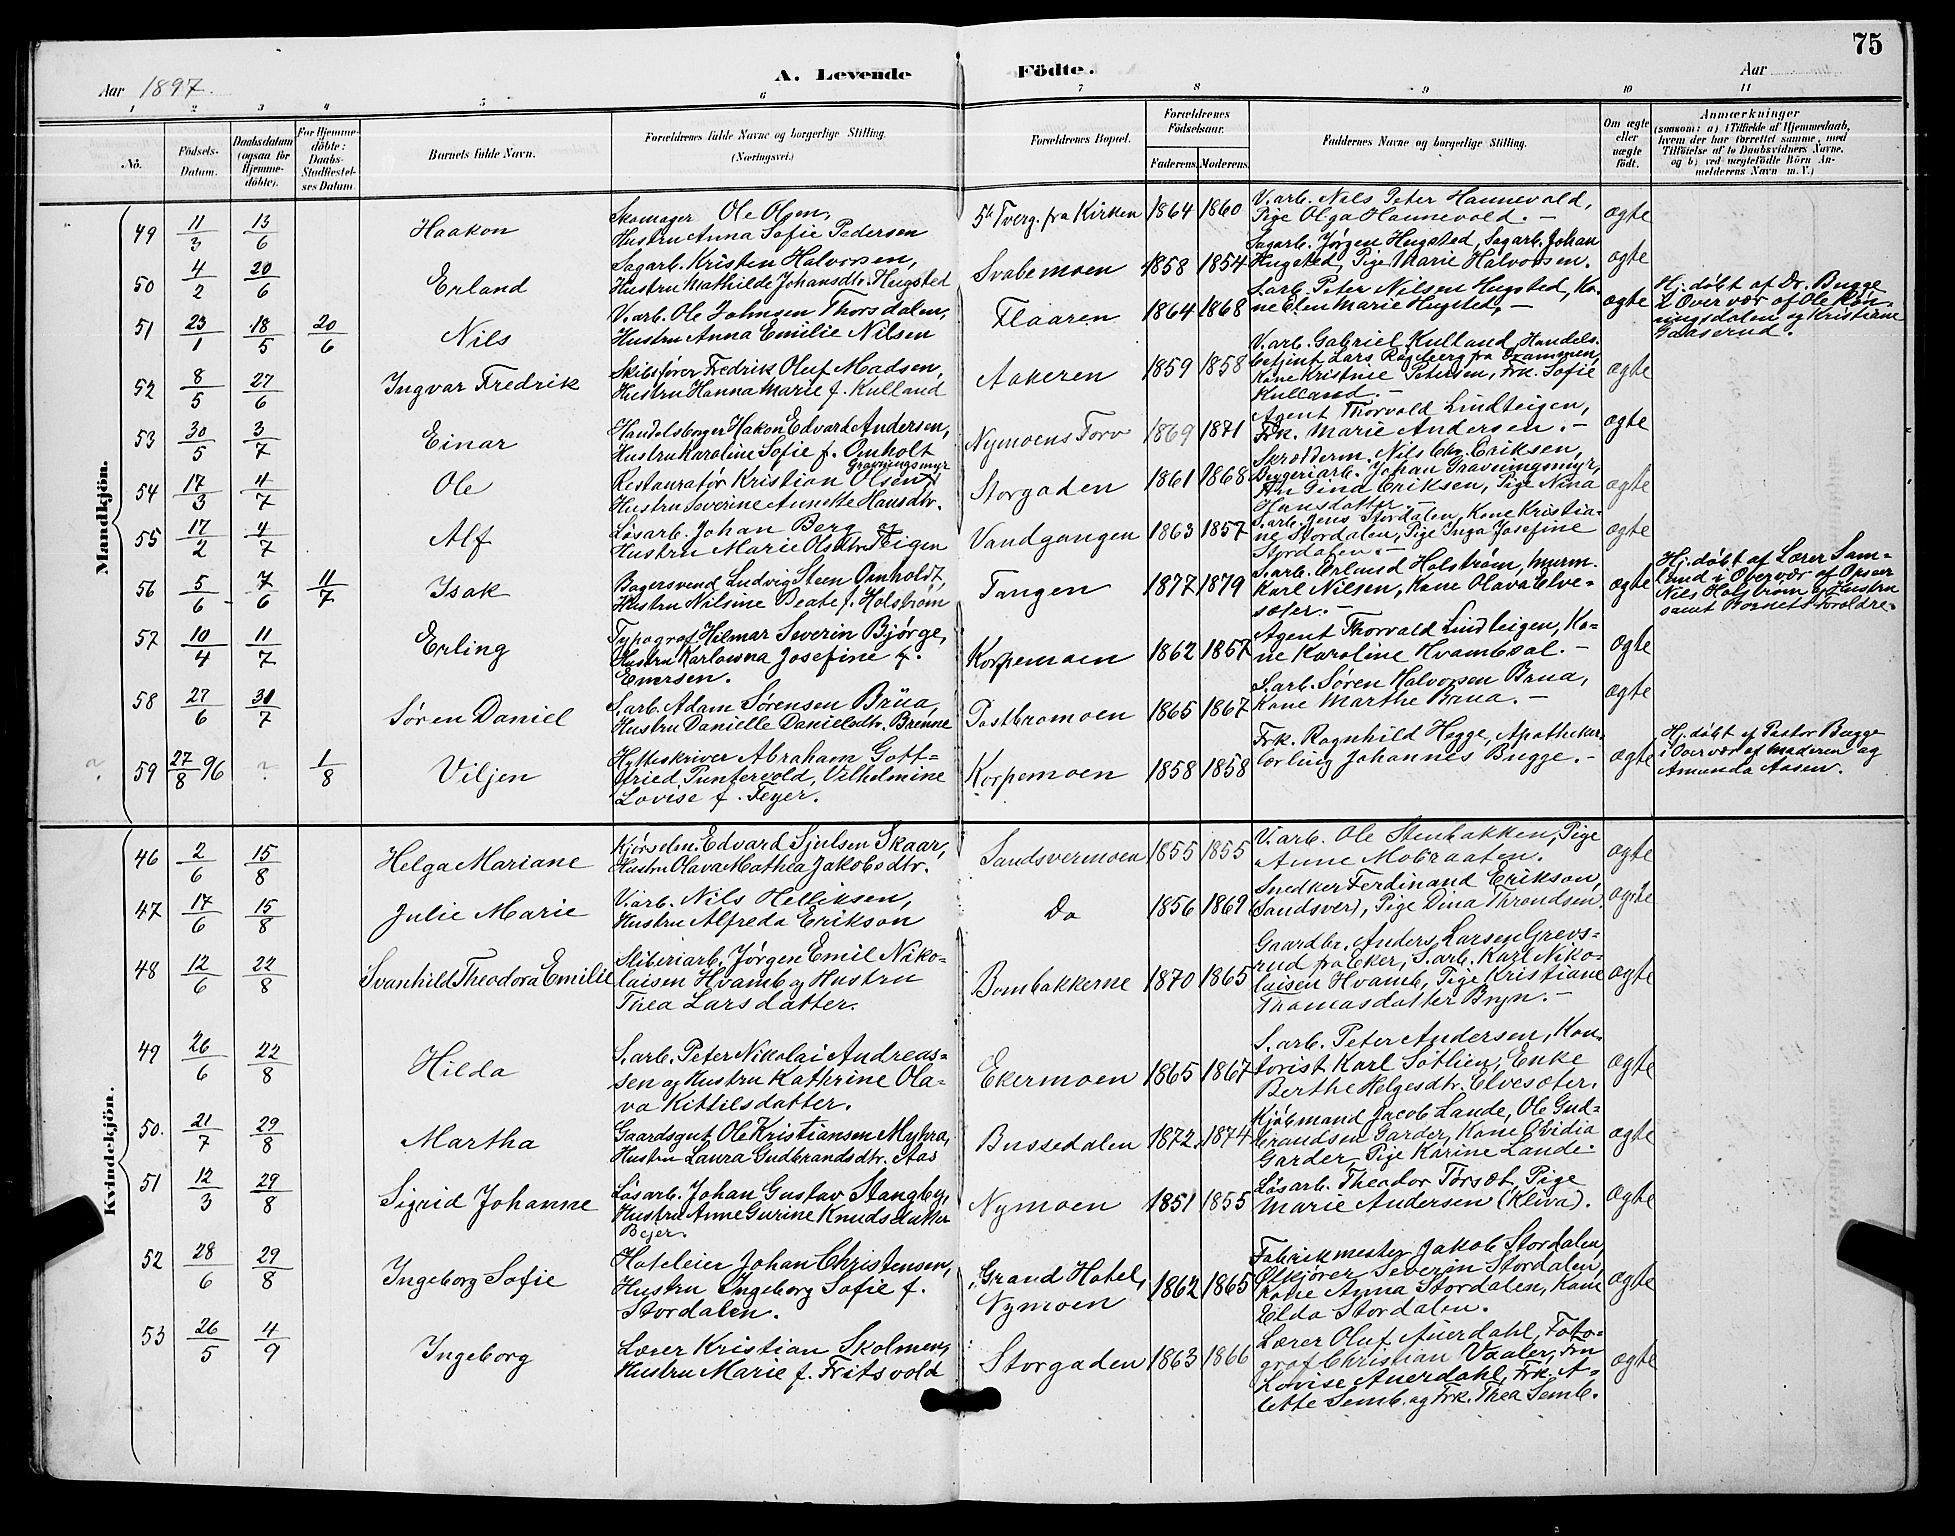 75
Aar 1897.
A. Levende Födte.
Aar
1 2 3 4 5 6 7 8 9 10 11
No.
Födsels-Datum.
Daabsdatum (ogsaa for Hjemme-döbte).
For Hjemme-döbte: Daabs-Stadfæstel-ses Datum.
Barnets fulde Navn.
Forældrenes fulde Navne og borgerlige Stilling. (Næringsvei.)
Forældrenes Bopæl.
Forældrenes Födselsaar. Faderens. Moderens.
Faddernes Navne og borgerlige Stilling.
Om ægte eller uægte födt.
Anmærkninger (saasom: a) i Tilfælde af Hjemmedaab, hvem der har forrettet samme, med Tilföielse af to Daabsvidners Navne, og b) ved uægtefödte Börn An-melderens Navn m. V.)
Mandkjön.
49 11/3 13/6 Haakon
Skomager Ole Olsen,
Hustru Anna Sofie Pedersen
5te Tverg. fra Kirken 1864 1860
V.arb. Nils Peter Hannevold,
Pige Olga Hannevold. –
ægte
50 4/2 20/6 Erland
Sagarb. Kristen Halvorsen,
Hustru Mathilde Johansdtr. Hugsted
Svabemoen 1858 1854
Sagarb. Jørgen Hugsted, Sagarb. Johan
Hugsted, Pige Marie Halvorsen.
ægte
51 23/1 18/5 20/6 Nils
V.arb. Ole Johnsen Thorsdalen,
Hustru Anna Emilie Nilsen
Flaaren 1864 1868
S.arb. Peter Nilsen Hugsted, Ko-
ne Elen Marie Hugsted, –
ægte
Hj. døbt af Dr. Bugge
i Overvær af Ole Røn-
ningsdalen og Kristiane
Gaaserud.
52 8/5 27/6 Ingvar Fredrik
Skibsfører Fredrik Oluf Madsen,
Hustru Hanna Marie f. Kulland
Aakeren 1859 1858
V.arb. Gabriel Kulland, Handels-
betjent Lars Rogeberg fra Drammen,
Kone Kristine Petersen, Frk. Sofie
Kulland. –
ægte
53 30/5 3/7 Einar
Handelsborger Hakon Edvard Andersen,
Hustru Karoline Sofie f. Omholt
Nymoens Torv 1869 1871
Agent Thorvald Lindteigen,
Frk. Marie Andersen. –
ægte
54 17/3 4/7 Ole
Gravningsmyr
Restauratør Kristian Olsen
Hustru Severine Annette Hansdtr.
Storgaden 1861 1868
Skrædderm. Nils Chr. Eriksen,
Byggeriarb. Johan Gravningsmyr,
Gina Eriksen, Pige Nina
Hansdatter –
ægte
55 17/2 4/7 Alf
Løsarb. Johan Berg og
Hustru Marie Olsdtr. Teigen
Vandgangen 1863 1857
S.arb. Jens Stordalen, Kone Kristia-
ne Stordalen, Pige Inga Josefine
Stordalen. –
ægte
56 5/6 7/6 11/7 Isak
Bagersvend Ludvig Steen Omholdt,
Hustru Nilsine Beate f. Holstrøm
Tangen 1877 1879
S.arb. Erland Holstrøm, murm.
Karl Nilsen, Kone Olava Elve-
sæter. –
ægte
Hj. døbt af Lærer Sam-
lund i Overvær af Opseer
Nils Holstrøm og Hustru
samt Barnets Forældre.
57 10/4 11/7 Erling
Typograf Hilmar Severin Bjørge,
Hustru Karlowna Josefine f.
Eversen.
Korpemoen 1862 1857
Agent Thorvald Lindteigen, Ko-
ne Karoline Hvambsal. –
ægte
58 27/6 31/7 Søren Daniel
S.arb. Adam Sørensen Brua,
Hustru Danielle Danielsdtr. Brenne
Pastbromoen 1865 1867
S.arb. Søren Halvorsen Brua,
Kone Marthe Brua. –
ægte
? 59 27/8 96 ? 1/8 Viljen
Hytteskriver Abraham Gott-
fried Puntervold, Vilhelmine
Lovise f. Feyer.
Korpemoen 1858 1858
Frk. Ragnhild Hegge, Apotheker-
lærling Johannes Bugge. –
ægte
Hj. døbt af Pastor Bugge
i Overvær af Moderen og
Amunda Aasen.
Kvindekjön.
46 2/6 15/8 Helga Mariane
Kjørselm. Edvard Sjulsen Skaar,
Hustru Olava Mathea Jakobsdtr.
Sandsvermoen 1855 1855
V.arb. Ole Stenbakken, Pige
Anne Mobraaten.
ægte
47 17/6 15/8 Julie Marie
V.arb. Nils Helliksen,
Hustru Alfreda Erikson
Do 1856 1869
Snedker Ferdinand Erikson,
(Sandsver), Pige Dina Throndsen.
ægte
48 12/6 22/8 Svanhild Theodora Emilie
Sliberiarb. Jørgen Emil Niko-
laisen Hvamb og Hustru
Thea Larsdatter.
Bombakkerne 1870 1865
Gaardbr. Anders Larsen Grevs-
rud fra Eker, S.arb. Karl Niko-
laisen Hvamb, Pige Kristiane
Thomasdatter Bryn. –
ægte
49 26/6 22/8 Hilda
S.arb. Peter Nikolai Andreas-
sen og Hustru Kathrine Ola-
va Kittilsdatter.
Ekermoen 1865 1867
S.arb. Peter Andersen, Kon-
torist Karl Søtlien, Enke
Berthe Helgesdtr. Elvesæter.
ægte
50. 21/7 29/8 Martha
Gaardsgut Ole Kristiansen Myhra,
Hustru Laura Gudbrandsdtr. Aas
Bussedalen 1872 1874
Kjøbmand Jacob Lande, Ole Gud-
brandsen Garder, Kone Ovidia
Garder, Pige Karine Lande.
ægte
51 12/3 29/8 Sigrid Johanne
Løsarb. Johan Gustav Stangeby,
Hustru Anne Gurine Knudsdatter
Bejer.
Nymoen 1851 1855
Løsarb. Theodor Torsæt, Pige
Marie Andersen (Kliva).
ægte
52 28/6 29/8 Ingeborg Sofie
Hoteleier Johan Christensen,
Hustru Ingeborg Sofie f.
Stordalen.
Grand Hotel,
Nymoen 1862 1865
Fabrikmester Jakob Stordalen,
Ølkjører Severin Stordalen,
Kone Anna Stordalen, Kone
Elda Stordalen.
ægte
53 26/5 4/9 Ingeborg
Lærer Kristian Skolmen,
Hustru Marie f. Fritsvold
Storgaden 1863 1866
Lærer Oluf Auerdahl, Foto-
graf Christian Vaaler, Fru
Lovise Auerdahl, Frk. A-
lette Semb. og Frk. Thea Semb.
ægte